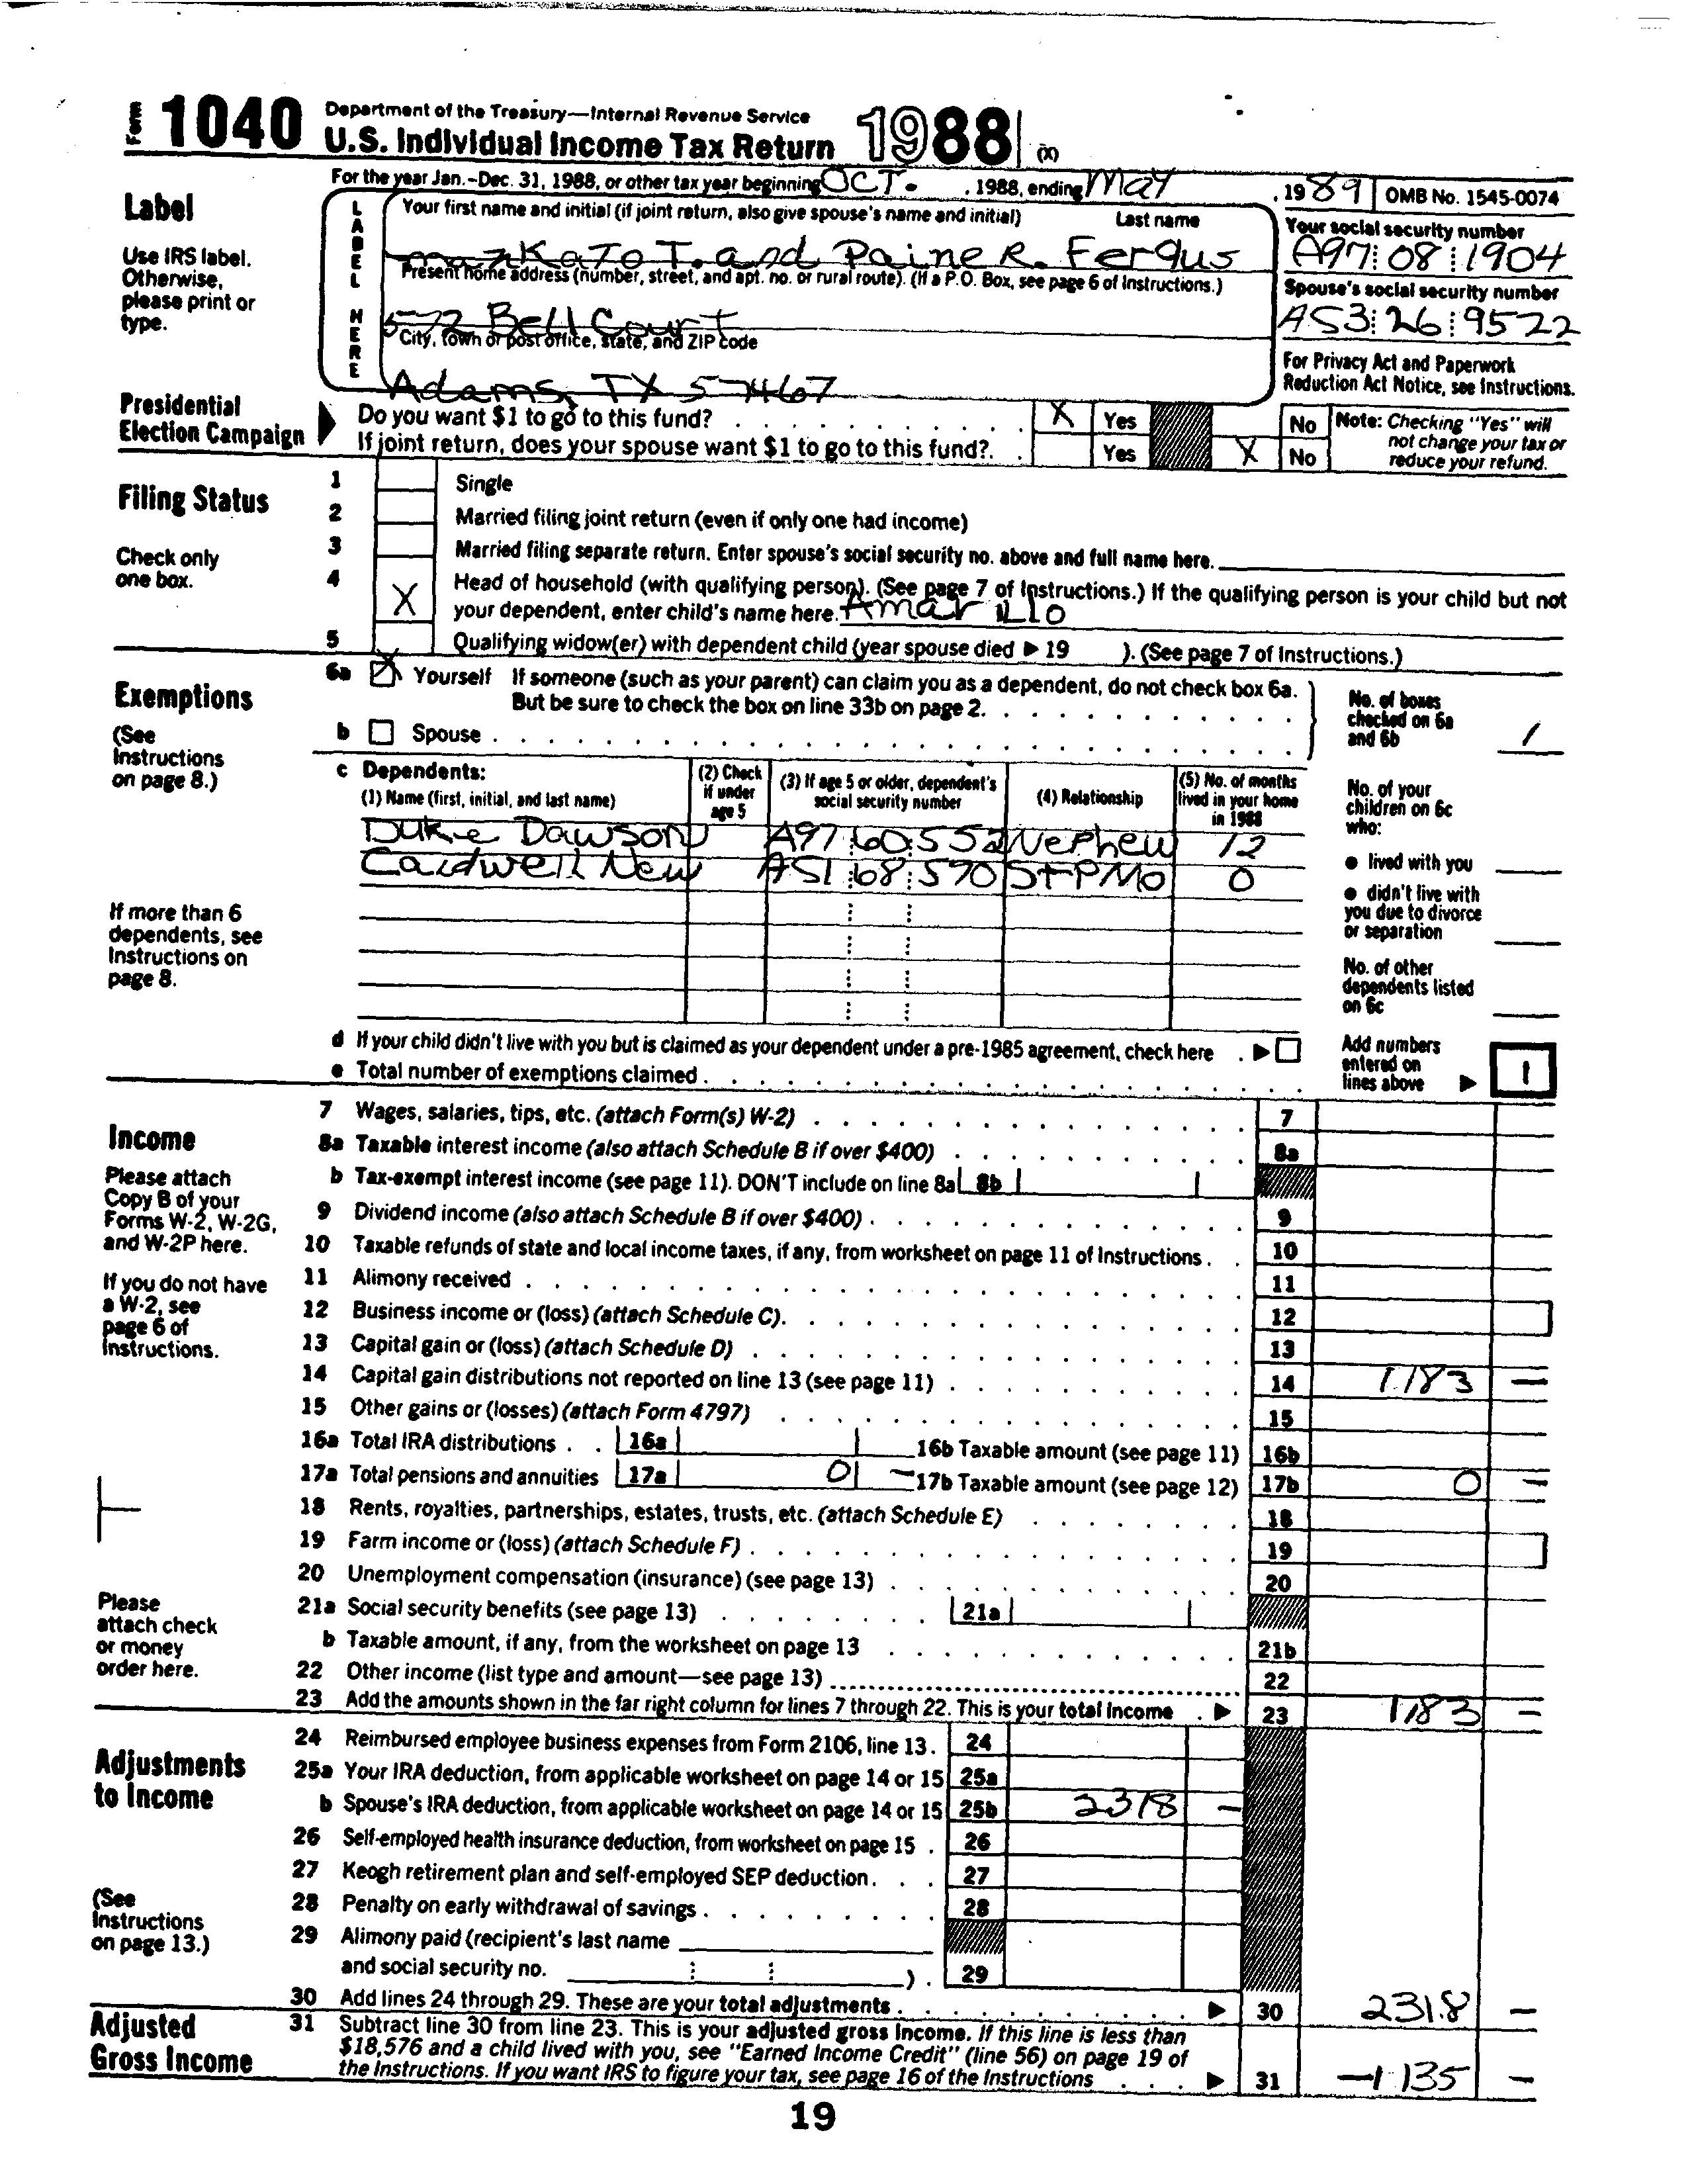 Form 1040 Department of the Treasury—Internal Revenue Service
U.S. Individual Income Tax Return 1988 (X)
For the year Jan.-Dec. 31, 1988, or other tax year beginning OCT. , 1988, ending May , 1989 OMB No. 1545-0074
Label
Use IRS label.
Otherwise,
please print or
type.
LABEL HERE
Your first name and initial (if joint return, also give spouse's name and initial) Last name
T. and Paine R. Fergus
Your social security number
A97 08 1904
Present home address (number, street, and apt. no. or rural route). (If a P.O. Box, see page 6 of Instructions.)
572 Bell Court
Spouse's social security number
A53 26 9522
City, town or post office, state, and ZIP code
Adams, TX 57467
For Privacy Act and Paperwork
Reduction Act Notice, see Instructions.
Presidential
Election Campaign
Do you want $1 to go to this fund? X Yes No
If joint return, does your spouse want $1 to go to this fund? Yes X No
Note: Checking "Yes" will
not change your tax or
reduce your refund.
Filing Status
Check only
one box.
1 Single
2 Married filing joint return (even if only one had income)
3 Married filing separate return. Enter spouse's social security no. above and full name here.
4 X Head of household (with qualifying person). (See page 7 of Instructions.) If the qualifying person is your child but not
your dependent, enter child's name here. Amarillo
5 Qualifying widow(er) with dependent child (year spouse died ▶ 19 ). (See page 7 of Instructions.)
Exemptions
(See
Instructions
on page 8.)
6a X Yourself If someone (such as your parent) can claim you as a dependent, do not check box 6a.
But be sure to check the box on line 33b on page 2.
b Spouse
No. of boxes
checked on 6a
and 6b 1
c Dependents:
(1) Name (first, initial, and last name)
(2) Check
if under
age 5
(3) If age 5 or older, dependent's
social security number
(4) Relationship
(5) No. of months
lived in your home
in 1988
Duke Dawson A97 60 552 Nephew 12
Caldwell New A51 68 570 STPMO 0
No. of your
children on 6c
who:
● lived with you
● didn't live with
you due to divorce
or separation
No. of other
dependents listed
on 6c
If more than 6
dependents, see
Instructions on
page 8.
d If your child didn't live with you but is claimed as your dependent under a pre-1985 agreement, check here ▶
e Total number of exemptions claimed
Add numbers
entered on
lines above ▶ 1
Income
Please attach
Copy B of your
Forms W-2, W-2G,
and W-2P here.
If you do not have
a W-2, see
page 6 of
Instructions.
Please
attach check
or money
order here.
7 Wages, salaries, tips, etc. (attach Form(s) W-2) 7
8a Taxable interest income (also attach Schedule B if over $400) 8a
b Tax-exempt interest income (see page 11). DON'T include on line 8a 8b
9 Dividend income (also attach Schedule B if over $400) 9
10 Taxable refunds of state and local income taxes, if any, from worksheet on page 11 of Instructions 10
11 Alimony received 11
12 Business income or (loss) (attach Schedule C) 12
13 Capital gain or (loss) (attach Schedule D) 13
14 Capital gain distributions not reported on line 13 (see page 11) 14 1183 —
15 Other gains or (losses) (attach Form 4797) 15
16a Total IRA distributions 16a 16b Taxable amount (see page 11) 16b
17a Total pensions and annuities 17a 0 — 17b Taxable amount (see page 12) 17b 0 —
18 Rents, royalties, partnerships, estates, trusts, etc. (attach Schedule E) 18
19 Farm income or (loss) (attach Schedule F) 19
20 Unemployment compensation (insurance) (see page 13) 20
21a Social security benefits (see page 13) 21a
b Taxable amount, if any, from the worksheet on page 13 21b
22 Other income (list type and amount—see page 13) 22
23 Add the amounts shown in the far right column for lines 7 through 22. This is your total income ▶ 23 1183 —
Adjustments
to Income
(See
Instructions
on page 13.)
24 Reimbursed employee business expenses from Form 2106, line 13. 24
25a Your IRA deduction, from applicable worksheet on page 14 or 15 25a
b Spouse's IRA deduction, from applicable worksheet on page 14 or 15 25b 2318 —
26 Self-employed health insurance deduction, from worksheet on page 15 26
27 Keogh retirement plan and self-employed SEP deduction 27
28 Penalty on early withdrawal of savings 28
29 Alimony paid (recipient's last name
and social security no. ). 29
30 Add lines 24 through 29. These are your total adjustments ▶ 30 2318 —
Adjusted
Gross Income
31 Subtract line 30 from line 23. This is your adjusted gross income. If this line is less than
$18,576 and a child lived with you, see "Earned Income Credit" (line 56) on page 19 of
the Instructions. If you want IRS to figure your tax, see page 16 of the Instructions ▶ 31 -1135 —
19